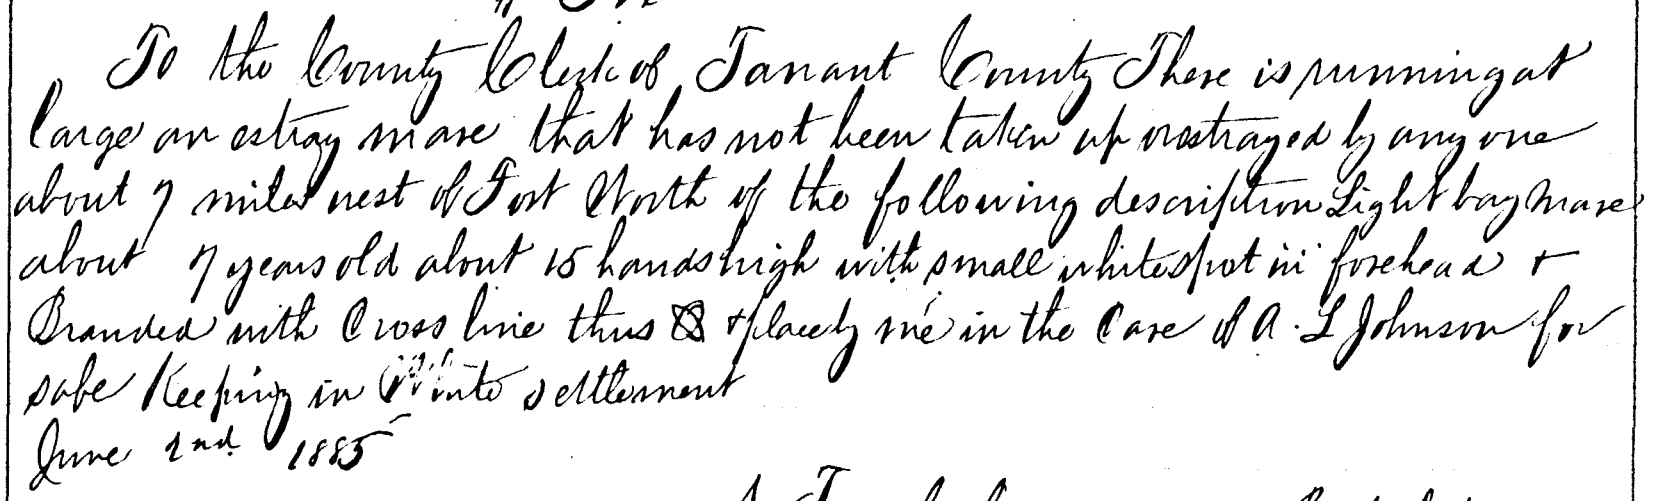 To the County Clerk of Tarrant County There is running at
large an estray mare that has not been taken up or estrayed by any one
about 7 miles west of Fort Worth of the following description Light bay mare
about 7 years old about 15 hands high with small white spot in forehead +
Branded with Cross line thus + placed by me in the Care of A. L Johnson for
safe Keeping in White settlement
June 2nd 1885